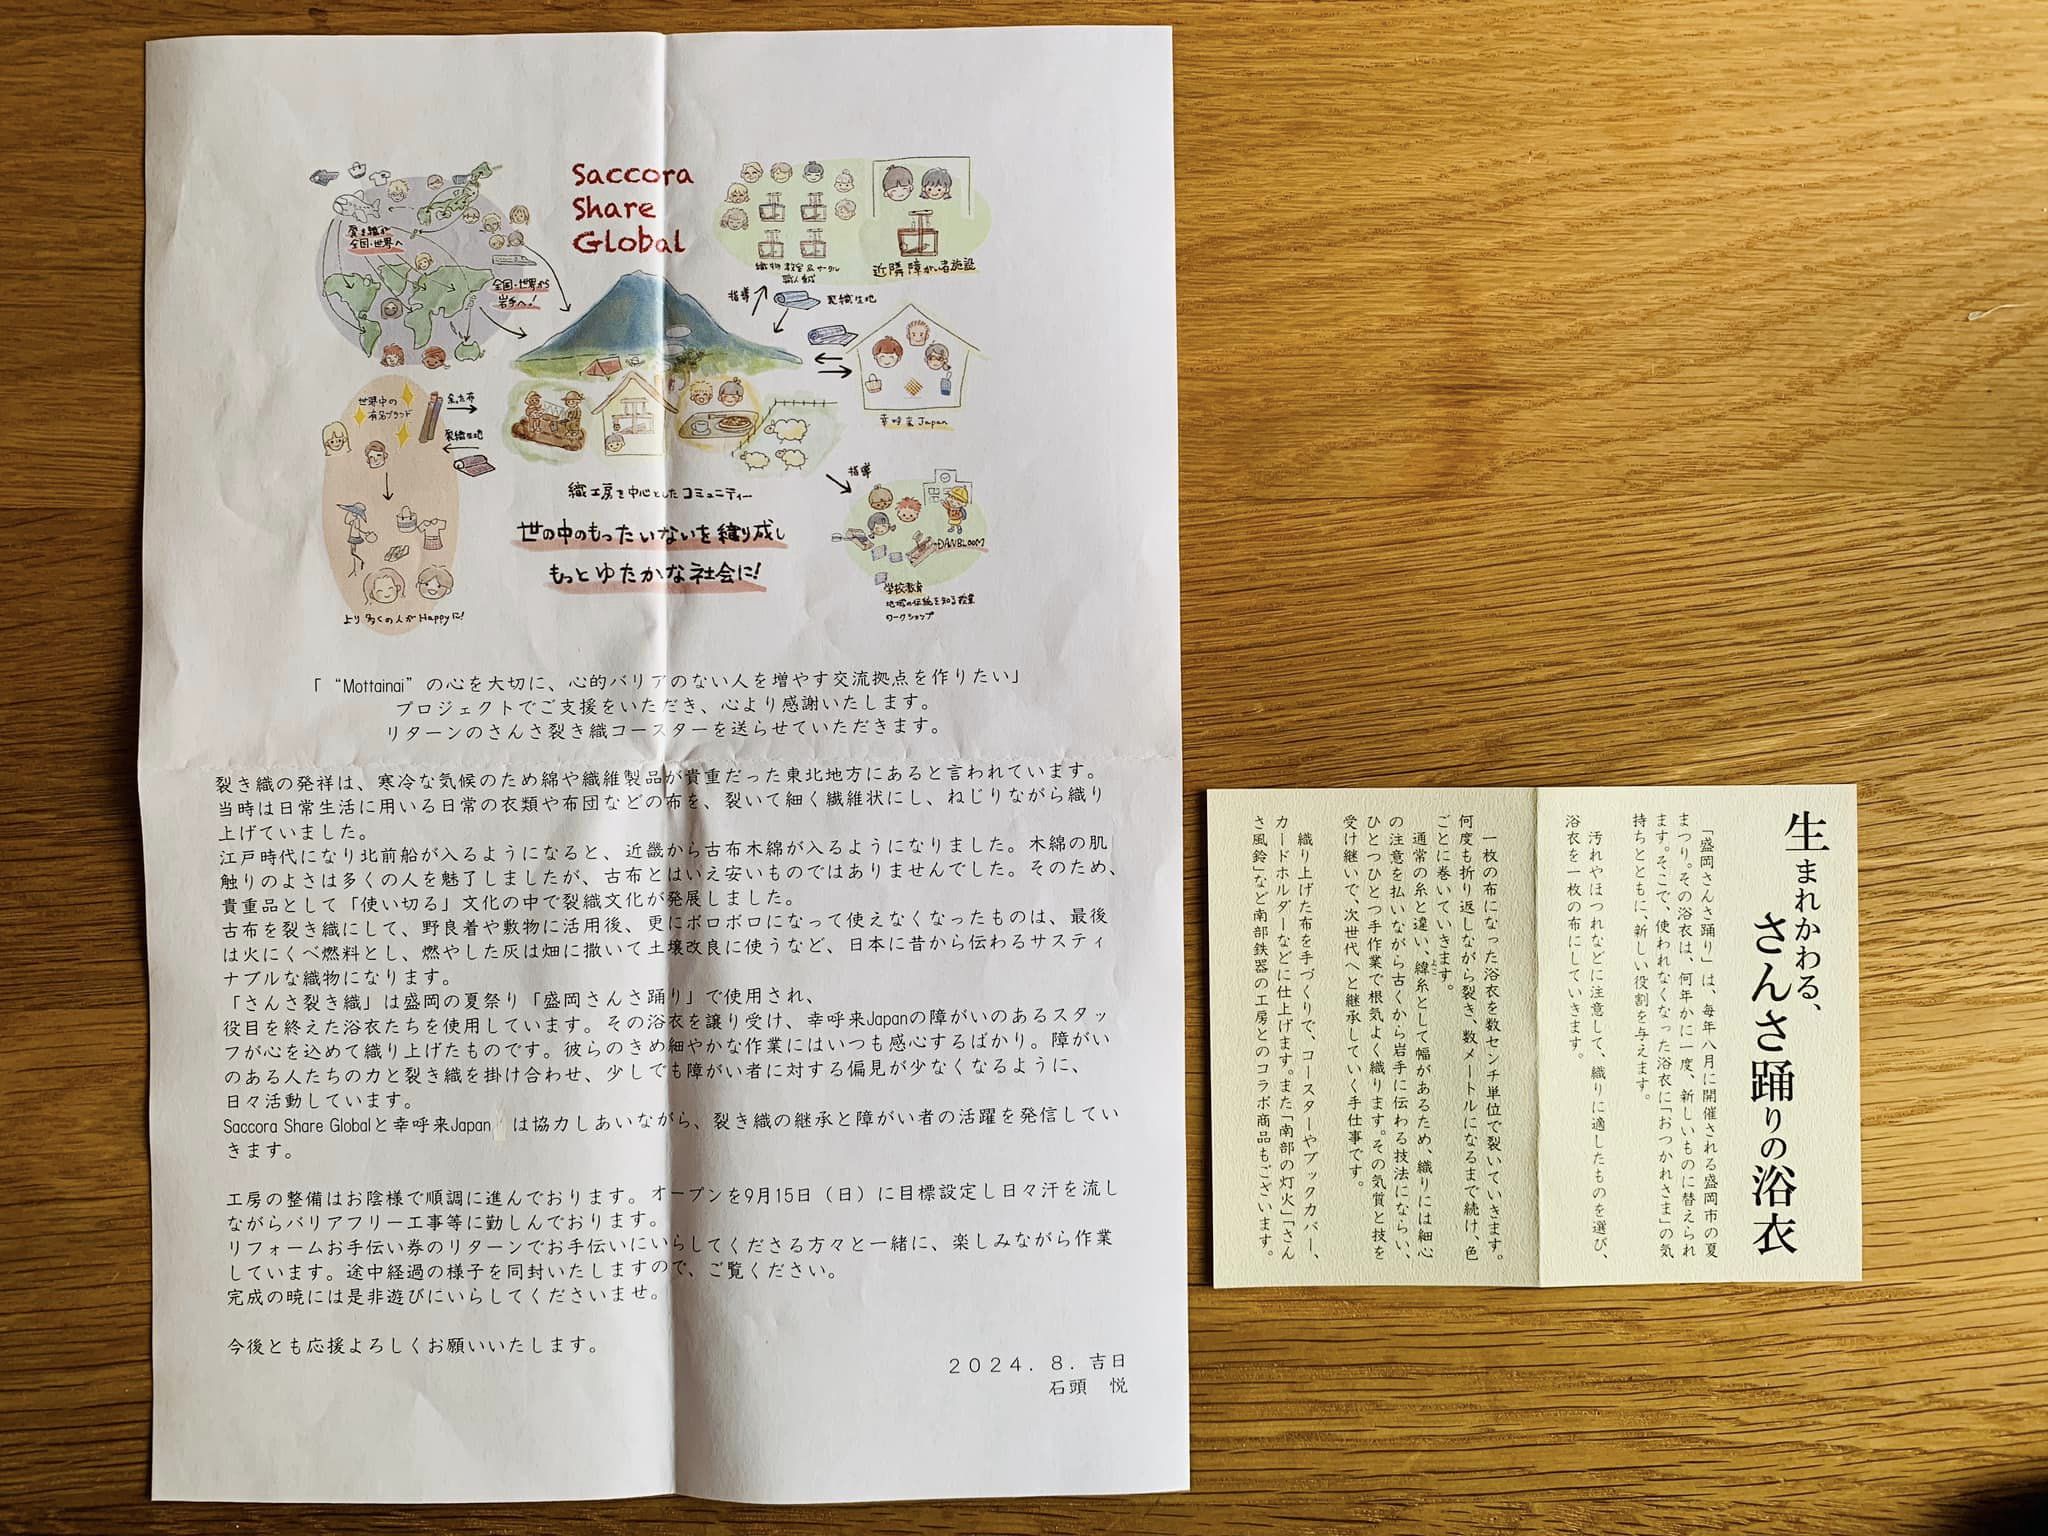 Saccora
Share
Global
裂き織が
全国・世界へ
全国・世界から
岩手へ!
織物教室&サークル
職人養成
近隣障がい者施設
指導
裂織生地
幸呼来Japan
世界中の
有名ブランド
裂織生地
より多くの人がHappyに!
織工房を中心としたコミュニティー
世の中のもったいないを織り成し
もっとゆたかな社会に!
指導
DANBLOOM
学校教育
地域の伝統を知る授業
ワークショップ
「“Mottainai”の心を大切に、心的バリアのない人を増やす交流拠点を作りたい」
プロジェクトでご支援をいただき、心より感謝いたします。
リターンのさんさ裂き織コースターを送らせていただきます。
裂き織の発祥は、寒冷な気候のため綿や繊維製品が貴重だった東北地方にあると言われています。
当時は日常生活に用いる日常の衣類や布団などの布を、裂いて細く繊維状にし、ねじりながら織り
上げていました。
江戸時代になり北前船が入るようになると、近畿から古布木綿が入るようになりました。木綿の肌
触りのよさは多くの人を魅了しましたが、古布とはいえ安いものではありませんでした。そのため、
貴重品として「使い切る」文化の中で裂織文化が発展しました。
古布を裂き織にして、野良着や敷物に活用後、更にボロボロになって使えなくなったものは、最後
は火にくべ燃料とし、燃やした灰は畑に撒いて土壌改良に使うなど、日本に昔から伝わるサスティ
ナブルな織物になります。
「さんさ裂き織」は盛岡の夏祭り「盛岡さんさ踊り」で使用され、
役目を終えた浴衣たちを使用しています。その浴衣を譲り受け、幸呼来Japanの障がいのあるスタッ
フが心を込めて織り上げたものです。彼らのきめ細やかな作業にはいつも感心するばかり。障がい
のある人たちの力と裂き織を掛け合わせ、少しでも障がい者に対する偏見が少なくなるように、
日々活動しています。
Saccora Share Globalと幸呼来Japan は協力しあいながら、裂き織の継承と障がい者の活躍を発信してい
きます。
工房の整備はお陰様で順調に進んでおります。オープンを9月15日（日）に目標設定し日々汗を流し
ながらバリアフリー工事等に勤しんでおります。
リフォームお手伝い券のリターンでお手伝いにいらしてくださる方々と一緒に、楽しみながら作業
しています。途中経過の様子を同封いたしますので、ご覧ください。
完成の暁には是非遊びにいらしてくださいませ。
今後とも応援よろしくお願いいたします。
2024．8．吉日
石頭　悦
生まれかわる、
さんさ踊りの浴衣
「盛岡さんさ踊り」は、毎年八月に開催される盛岡市の夏
まつり。その浴衣は、何年かに一度、新しいものに替えられ
ます。そこで、使われなくなった浴衣に「おつかれさま」の気
持ちとともに、新しい役割を与えます。
汚れやほつれなどに注意して、織りに適したものを選び、
浴衣を一枚の布にしていきます。
一枚の布になった浴衣を数センチ単位で裂いていきます。
何度も折り返しながら裂き、数メートルになるまで続け、色
ごとに巻いていきます。
通常の糸と違い、緯糸として幅があるため、織りには細心
よこ
の注意を払いながら古くから岩手に伝わる技法にならい、
ひとつひとつ手作業で根気よく織ります。その気質と技を
受け継いで、次世代へと継承していく手仕事です。
織り上げた布を手づくりで、コースターやブックカバー、
カードホルダーなどに仕上げます。また「南部の灯火」「さん
さ風鈴」など南部鉄器の工房とのコラボ商品もございます。